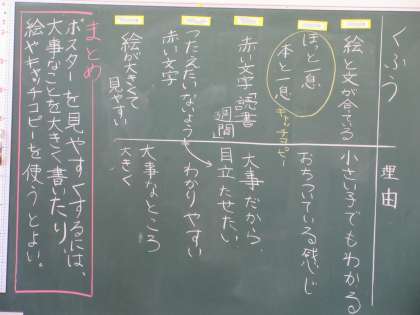 くふう
理由
絵と文が合っている
小さい子でもわかる
ほっと一息
本と一息
キャッチコピー
おちついている感じ
赤い文字 読書
週間
大事だから
目立たせたい
つたえたいないようも
赤い文字
わかりやすい
絵が大きくて
見やすい
大事なところ
大きく
まとめ
ポスターを見やすくするには、
大事なことを大きく書いたり、
絵やキャッチコピーを使うとよい。